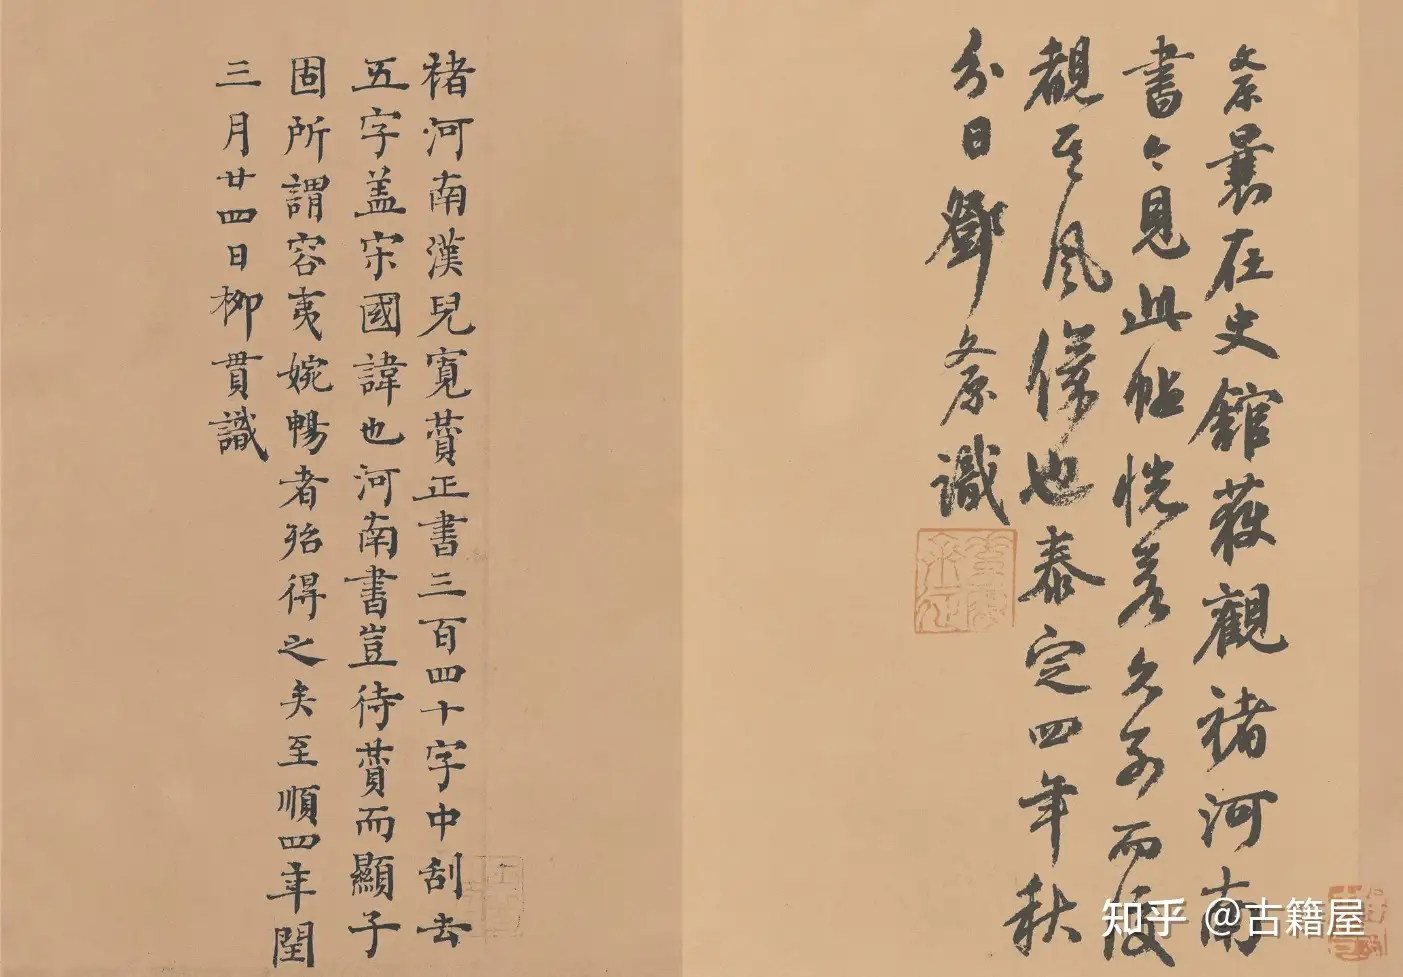 文原曩在史館薇觀褚河南
書今見此帖恍若久別而復
覩其風儀也泰定四年秋
分日鄧文原識
褚河南漢兒寬賛正書三百四十字中刮去
五字盖宋國諱也河南書豈待賛而顯子
固所謂容夷婉暢者殆得之矣至順四年閏
三月廿四日柳貫識
知乎 @古籍屋